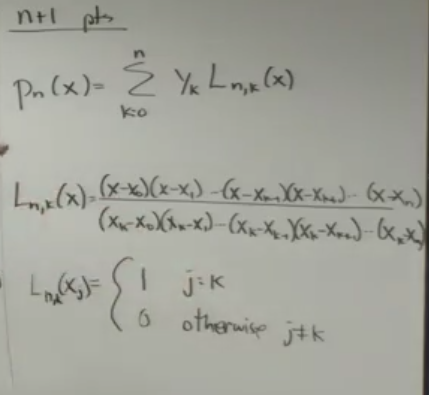 n+1 pts
Pn(x)= Σ k=0 n yk Ln,k(x)
Ln,k(x)= (x-x0)(x-x1)--(x-xk-1)(x-xk+1)--(x-xn) / (xk-x0)(xk-x1)--(xk-xk-1)(xk-xk+1)--(xk-xn)
Ln,k(xj)= { 1 j=k
0 otherwise j≠k